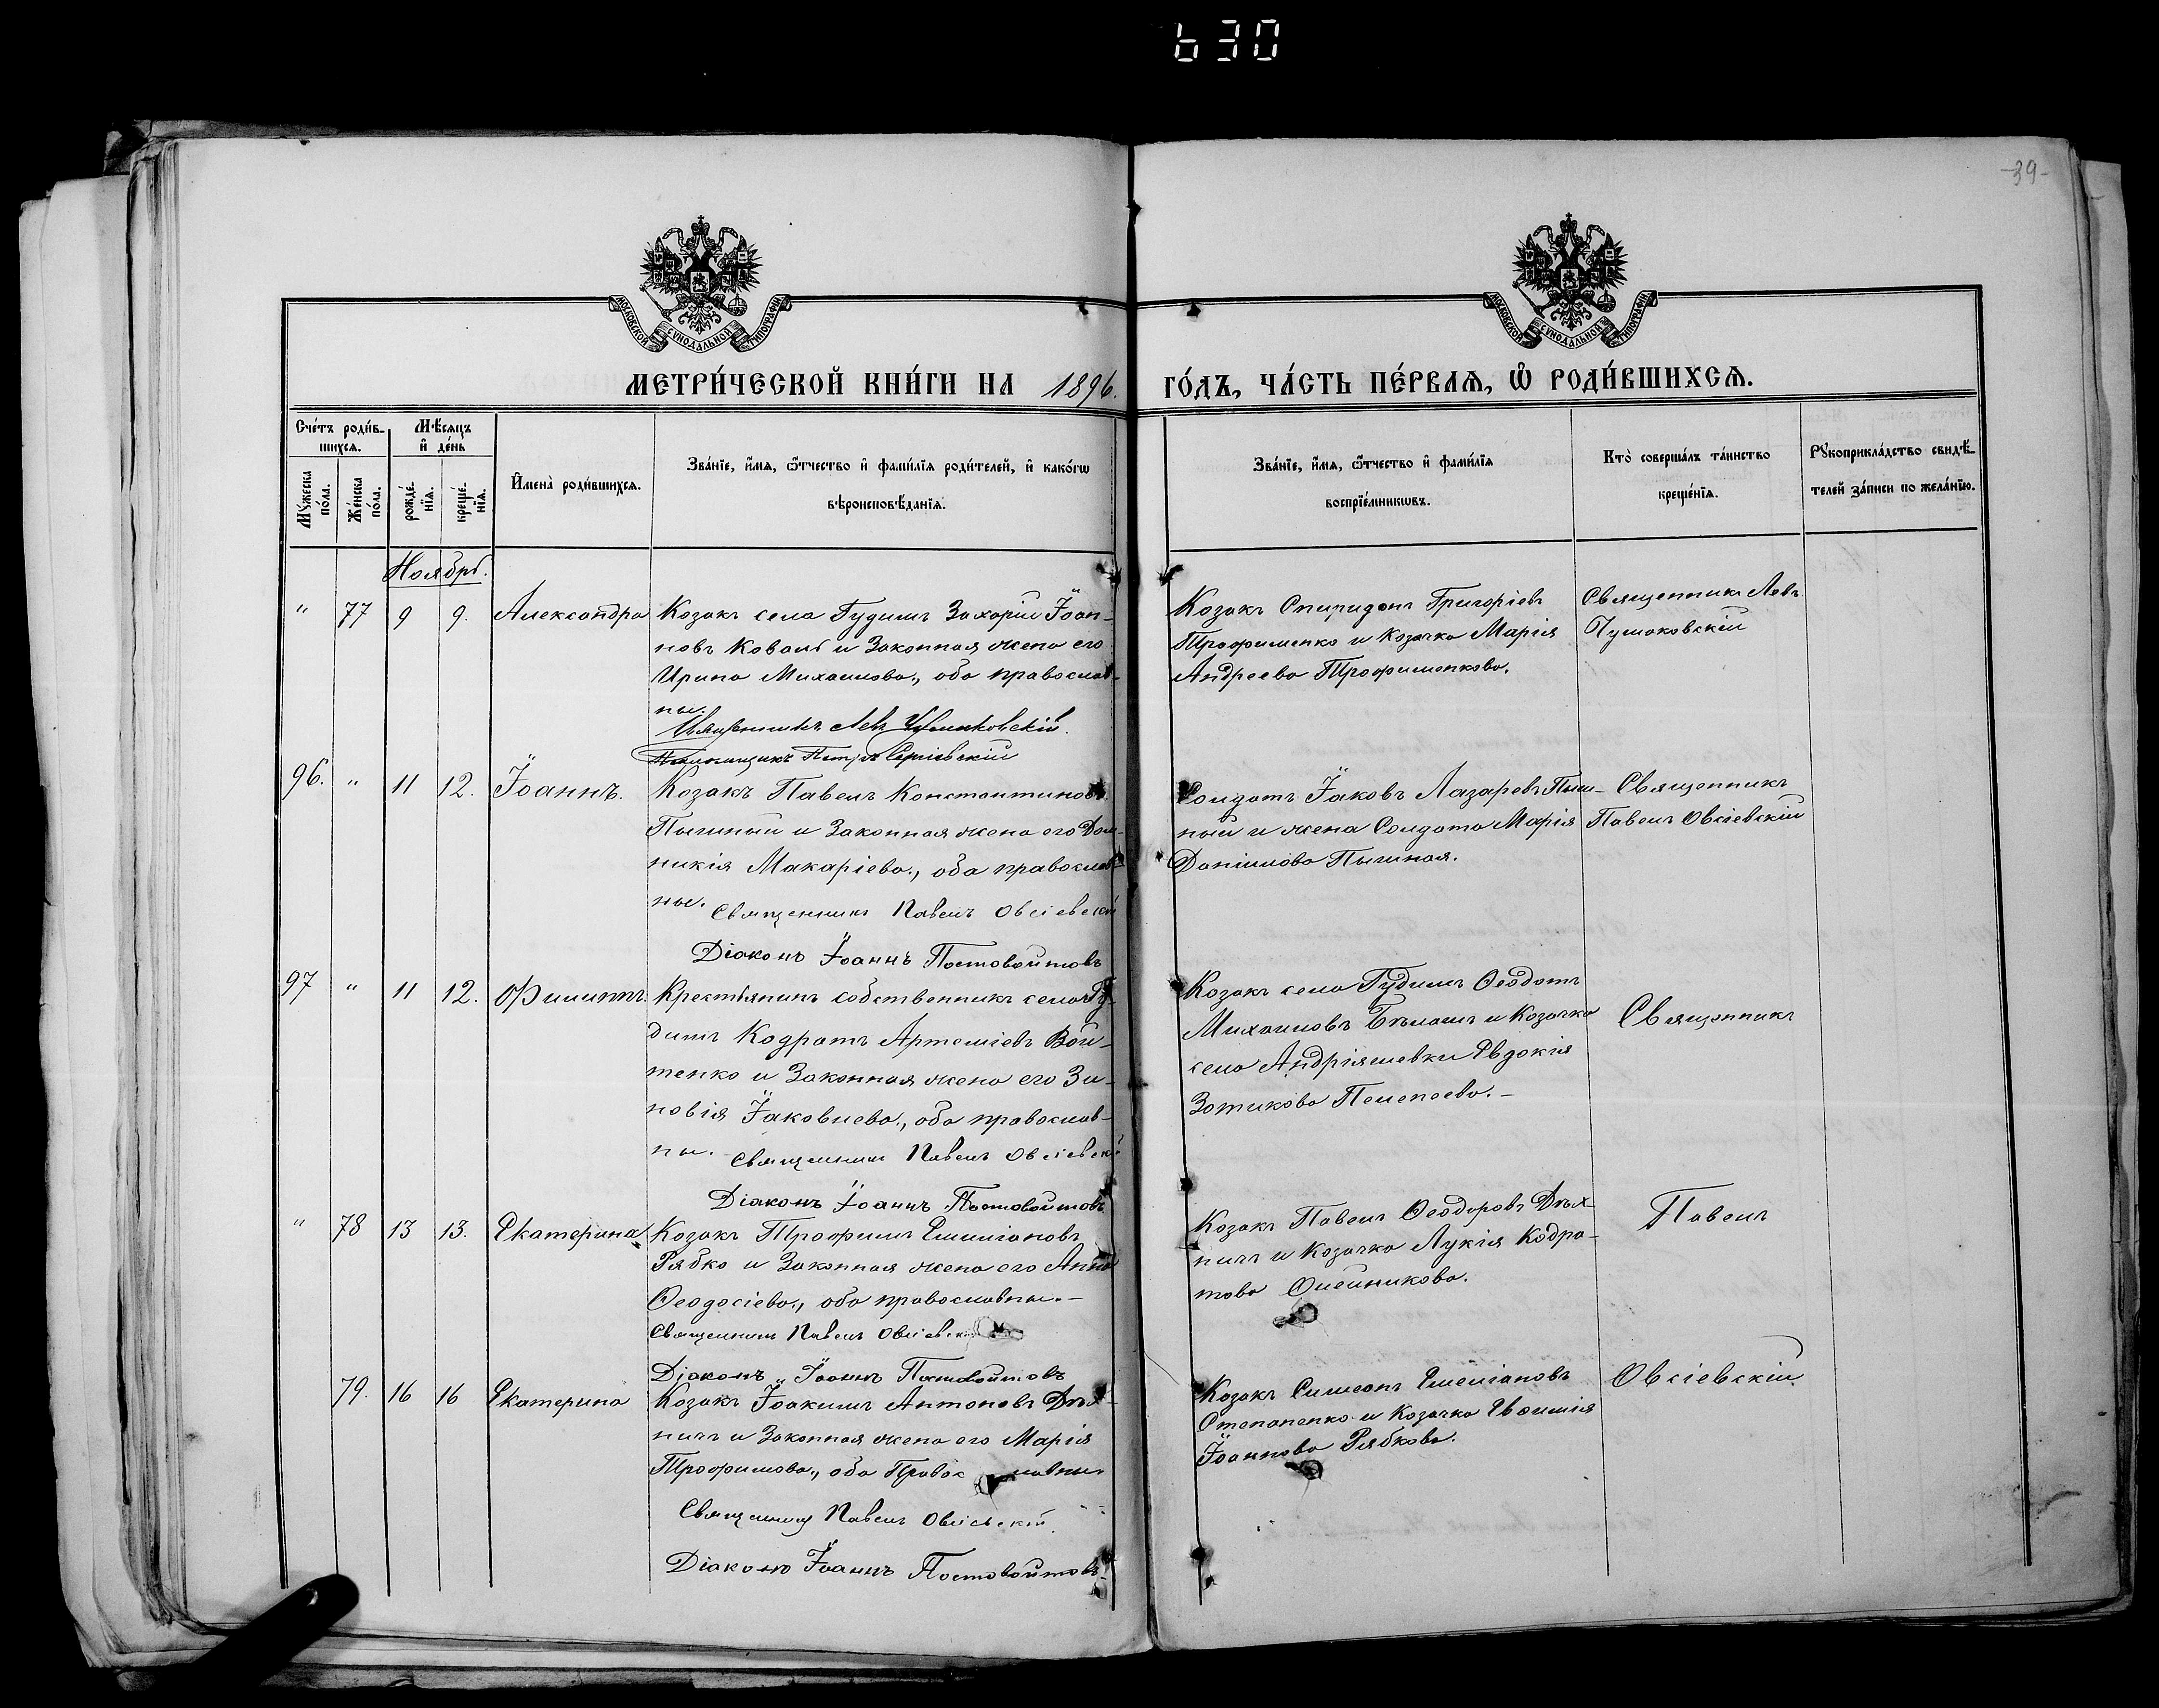 630
-39-
МОСКОВСКОЙ СѴНОДАЛЬНОЙ ТИПОГРАФІИ
МОСКОВСКОЙ СѴНОДАЛЬНОЙ ТИПОГРАФІИ
МЕТРИ́ЧЕСКОЙ КНИ́ГИ НА 1896. ГО́ДЪ, ЧА́СТЬ ПЕ́РВАѦ, Ѡ РОДИ́ВШИХСѦ.
Сче́тъ роди́в-
шихсѧ.
Мꙋ́жеска по́ла.
Же́нска по́ла.
Мѣ́сяцъ
и҆ де́нь
рожде́-
нїѧ.
креще́-
нїѧ.
И҆мена̀ роди́вшихсѧ.
Зва́нїе, и҆́мѧ, ѻ҆́тчество и҆ фами́лїѧ роди́телей, и҆ како́гѡ
вѣроисповѣ́данїѧ.
Зва́нїе, и҆́мѧ, ѻ҆́тчество и҆ фами́лїѧ
воспрїе́мникѡвъ.
Кто̀ соверша́лъ та́инство
креще́нїѧ.
Рꙋкоприкла́дство свидѣ́-
телей за́писи по жела́нїю.
Ноябрь.
" 77 9 9. Александра
Козакъ села Гудимъ Захарій Іоан-
новъ Коваль и Законная жена его
Ирина Михаилова, оба православ-
ны.
Священникъ Левъ Чумаковскій.
Петръ Сергіевскій
Козакъ Спиридонъ Григоріевъ
Трофименко и Козачка Марія
Андреева Трофименкова.
Священникъ Левъ
Чумаковскій
96. " 11 12. Іоаннъ.
Козакъ Павелъ Константиновъ
Пышный и Законная жена его Дом-
никія Макаріева, оба православ-
ны. Священникъ Павелъ Овсіевскій
Діаконъ Іоаннъ Постовойтовъ
Солдатъ Іаковъ Лазаревъ Пыш-
ный и жена Солдата Марія
Даніилова Пышная.
Священникъ
Павелъ Овсіевскій
97 " 11 12. Филиппъ.
Крестьянинъ собственникъ села Гу-
димъ Кодратъ Артеміевъ Вой-
тенко и Законная жена его Зи-
новія Іаковлева, оба православ-
ны. Священникъ Павелъ Овсіевскій
Діаконъ Іоаннъ Постовойтовъ
Козакъ села Гудимъ Ѳеодотъ
Михаиловъ и Козачка
села Андріяшевки Евдокія
Зотикова Пелепеева.-
Священникъ
" 78 13 13. Екатерина
Козакъ Трофимъ Емиліановъ
Рябко и Законная жена его Анна
Ѳеодосіева, оба православны.-
Священникъ Павелъ Овсіевскій
Діаконъ Іоаннъ Постовойтовъ
Козакъ Павелъ Ѳеодоровъ Дѣх-
ничъ и Козачка Лукія Кодра-
това Олейникова.
Павелъ
79. 16 16 Екатерина
Козакъ Іоакимъ Антоновъ Дѣх-
ничъ и Законная жена его Марія
Трофимова, оба Православны.
Священникъ Павелъ Овсіевскій.
Діаконъ Іоаннъ Постовойтовъ.
Козакъ Симеонъ Емеліановъ
Степаненко и Козачка Евфимія
Іоаннова Рябкова.
Овсіевскій